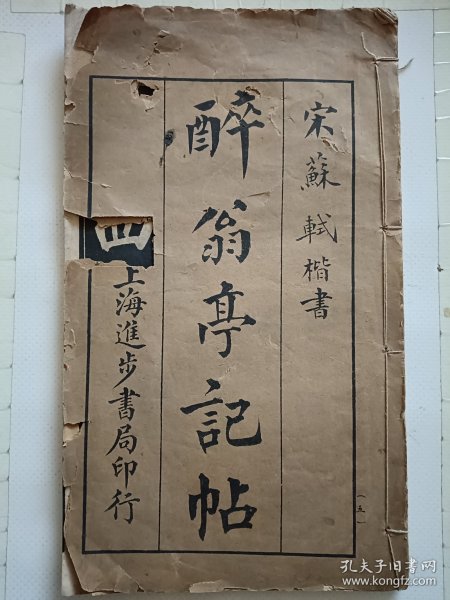 宋蘇軾楷書
醉翁亭記帖
四
上海進步書局印行
（五）
孔夫子旧书网
www.kongfz.com